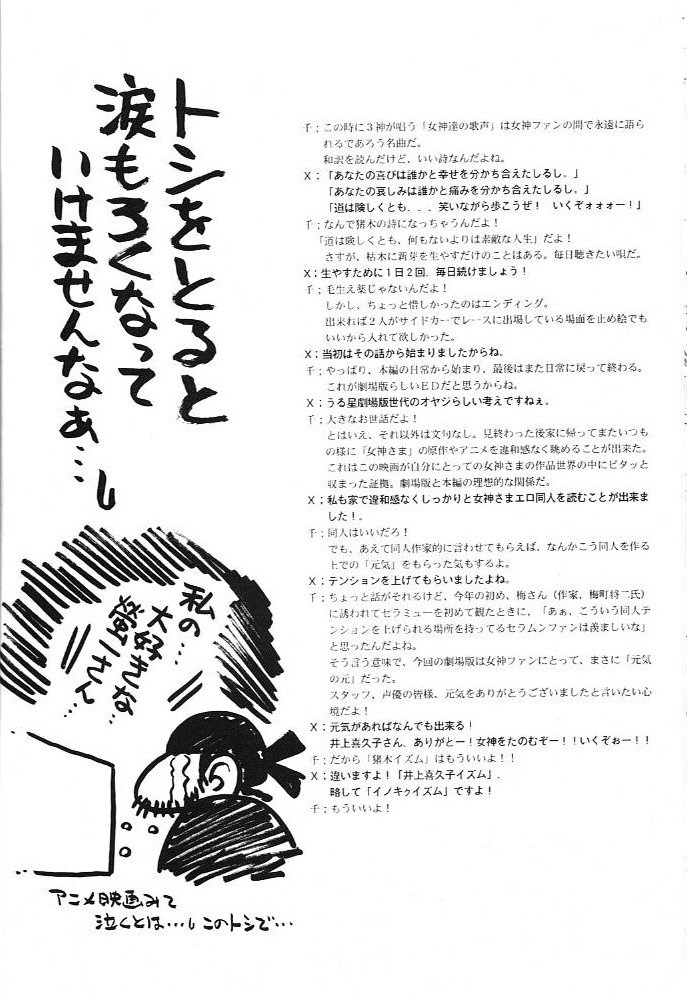 トシをとると
涙もろくなって
いけませんなぁ…
千；この時に３神が唱う「女神達の歌声」は女神ファンの間で永遠に語ら
れるであろう名曲だ。
和訳を読んだけど、いい詩なんだよね。
Ｘ：「あなたの喜びは誰かと幸せを分かち合えたしるし。」
「あなたの哀しみは誰かと痛みを分かち合えたしるし。」
「道は険しくとも、．．、笑いながら歩こうぜ！　いくぞォォォー！」
千；なんで猪木の詩になっちゃうんだよ！
「道は険しくとも、何もないよりは素敵な人生」だよ！
さすが、枯木に新芽を生やすだけのことはある。毎日聴きたい唄だ。
Ｘ；生やすために１日２回．毎日続けましょう！
千；毛生え薬じゃないんだよ！
しかし、ちょっと惜しかったのはエンディング。
出来れば２人がサイドカーでレースに出場している場面を止め絵でも
いいから入れて欲しかった。
Ｘ；当初はその話から始まりましたからね。
千；やっぱり、本編の日常から始まり、最後はまた日常に戻って終わる。
これが劇場版らしいＥＤだと思うからね。
Ｘ；うる星劇場版世代のオヤジらしい考えですねぇ。
千；大きなお世話だよ！
とはいえ、それ以外は文句なし。見終わった後家に帰ってまたいつも
の様に「女神さま」の原作やアニメを違和感なく眺めることが出来た。
これはこの映画が自分にとっての女神さまの作品世界の中にピタッと
収まった証拠。劇場版と本編の理想的な関係だ。
Ｘ；私も家で違和感なくしっかりと女神さまエロ同人を読むことが出来ま
した！。
千；同人はいいだろ！
でも、あえて同人作家的に言わせてもらえば、なんかこう同人を作る
上での「元気」をもらった気もするよ。
Ｘ；テンションを上げてもらいましたよね。
千；ちょっと話がそれるけど、今年の初め、梅さん（作家、梅町将二氏）
に誘われてセラミューを初めて観たときに、「あぁ、こういう同人テ
ンションを上げられる場所を持ってるセラムンファンは羨ましいな」
と思ったんだよね。
そう言う意味で、今回の劇場版は女神ファンにとって、まさに「元気
の元」だった。
スタッフ、声優の皆様、元気をありがとうございましたと言いたい心
境だよ！
Ｘ；元気があればなんでも出来る！
井上喜久子さん、ありがとー！女神をたのむぞー！！いくぞぉー！！
千；だから「猪木イズム」はもういいよ！！
Ｘ；違いますよ！「井上喜久子イズム」．
略して「イノキゥイズム」ですよ！
千；もういいよ！
私の…
大好きな…
螢一さん…
アニメ映画みて
泣くとは…このトシで…